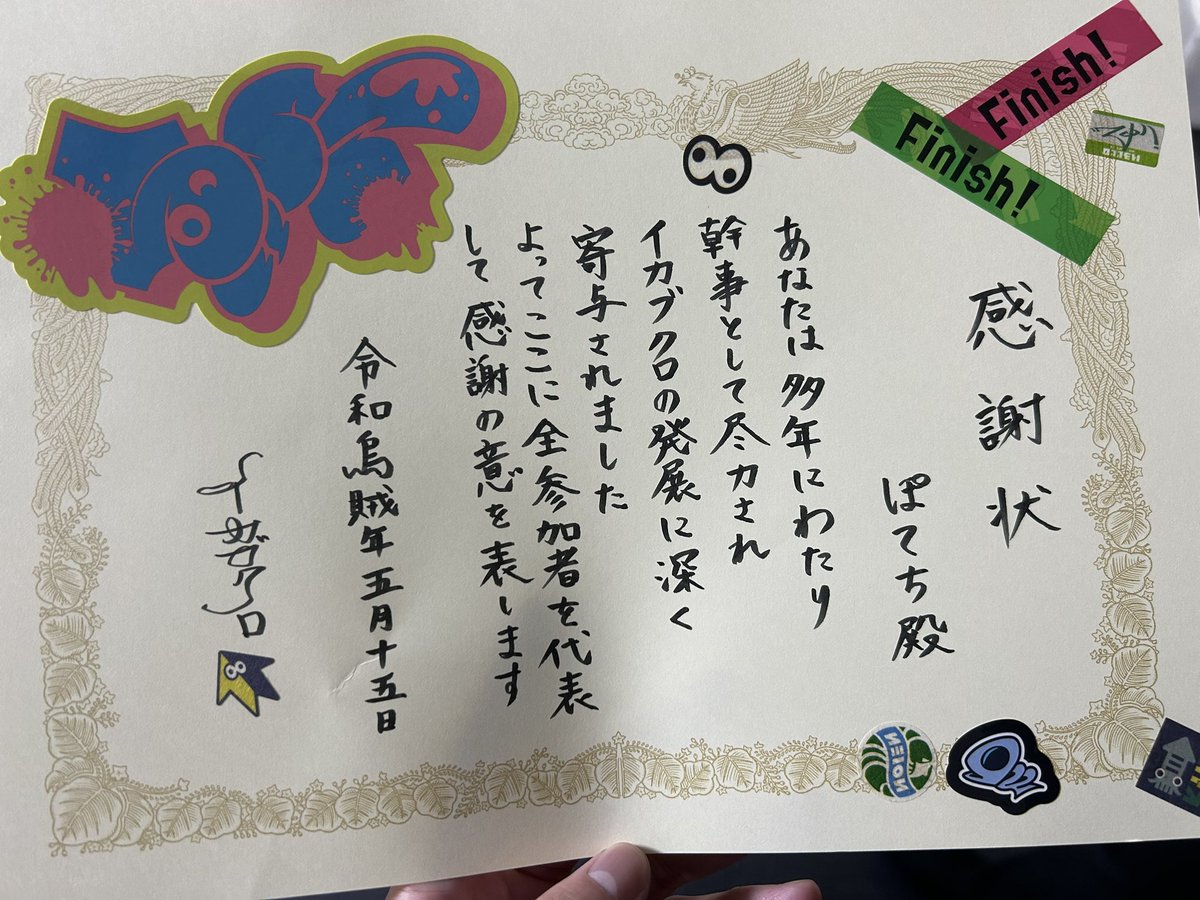 感謝状
ぽてち殿
あなたは多年にわたり
幹事として尽力され
イカブクロの発展に深く
寄与されました
よってここに全参加者を代表
して感謝の意を表します
令和烏賊年五月十五日
Finish!
Finish!